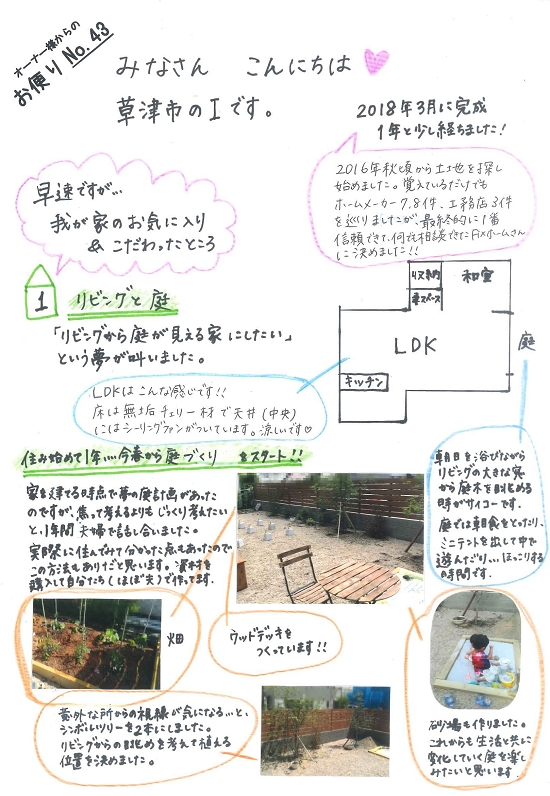 オーナー様からの
お便り No.43
みなさん こんにちは
草津市のIです。
2018年3月に完成
1年と少し経ちました!
2016年秋頃から土地を探し
始めました。覚えているだけでも
ホームメーカー7,8件、工務店3件
を巡りましたが、最終的に1番
信頼できて、何でも相談できたA×ホームさん
に決めました!!
早速ですが…
我が家のお気に入り
& こだわったところ
1 リビングと庭
「リビングから庭が見える家にしたい」
という夢が叶いました。
収納
和室
LDK
キッチン
庭
LDKはこんな感じです!!
床は無垢チェリー材で天井(中央)
にはシーリングファンがついています。涼しいです♡
住み始めて1年…今春から庭づくり をスタート!!
家を建てる時点で夢の庭計画があった
のですが、焦って考えるよりもじっくり考えたい
と1年間夫婦で話し合いました。
実際に住んでみて分かった点もあったので
この方法もありだと思います。資材を
購入して自分たち(ほぼ夫)で作ってます。
朝日を浴びながら
リビングの大きな窓
から庭木を眺める
時がサイコーです。
庭では朝食をとったり、
ミニテントを出して中で
遊んだり… ほっこりする
の時間です。
畑
ウッドデッキを
つくっています!!
意外な所からの視線が気になる…と、
シンボルツリーを2本にしました。
リビングからの眺めを考えて植える
位置を決めました。
砂場も作りました。
これからも生活と共に
変化していく庭を楽し
みたいと思います